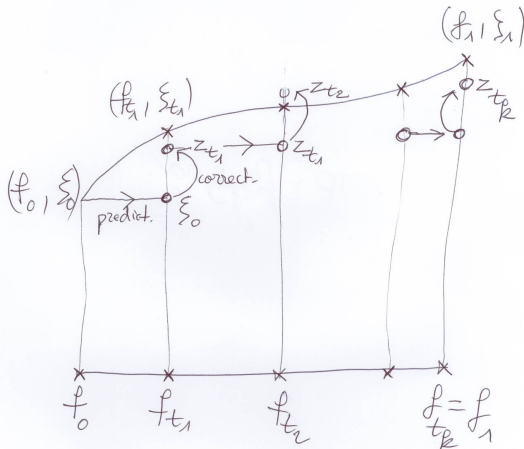 (f₁, ξ₁)
(f_t₁, ξ_t₁)
z_t₂
z_t_k
z_t₁
z_t₁
correct.
(f₀, ξ₀)
predict.
ξ₀
f₀
f_t₁
f_t₂
f_t_k = f₁